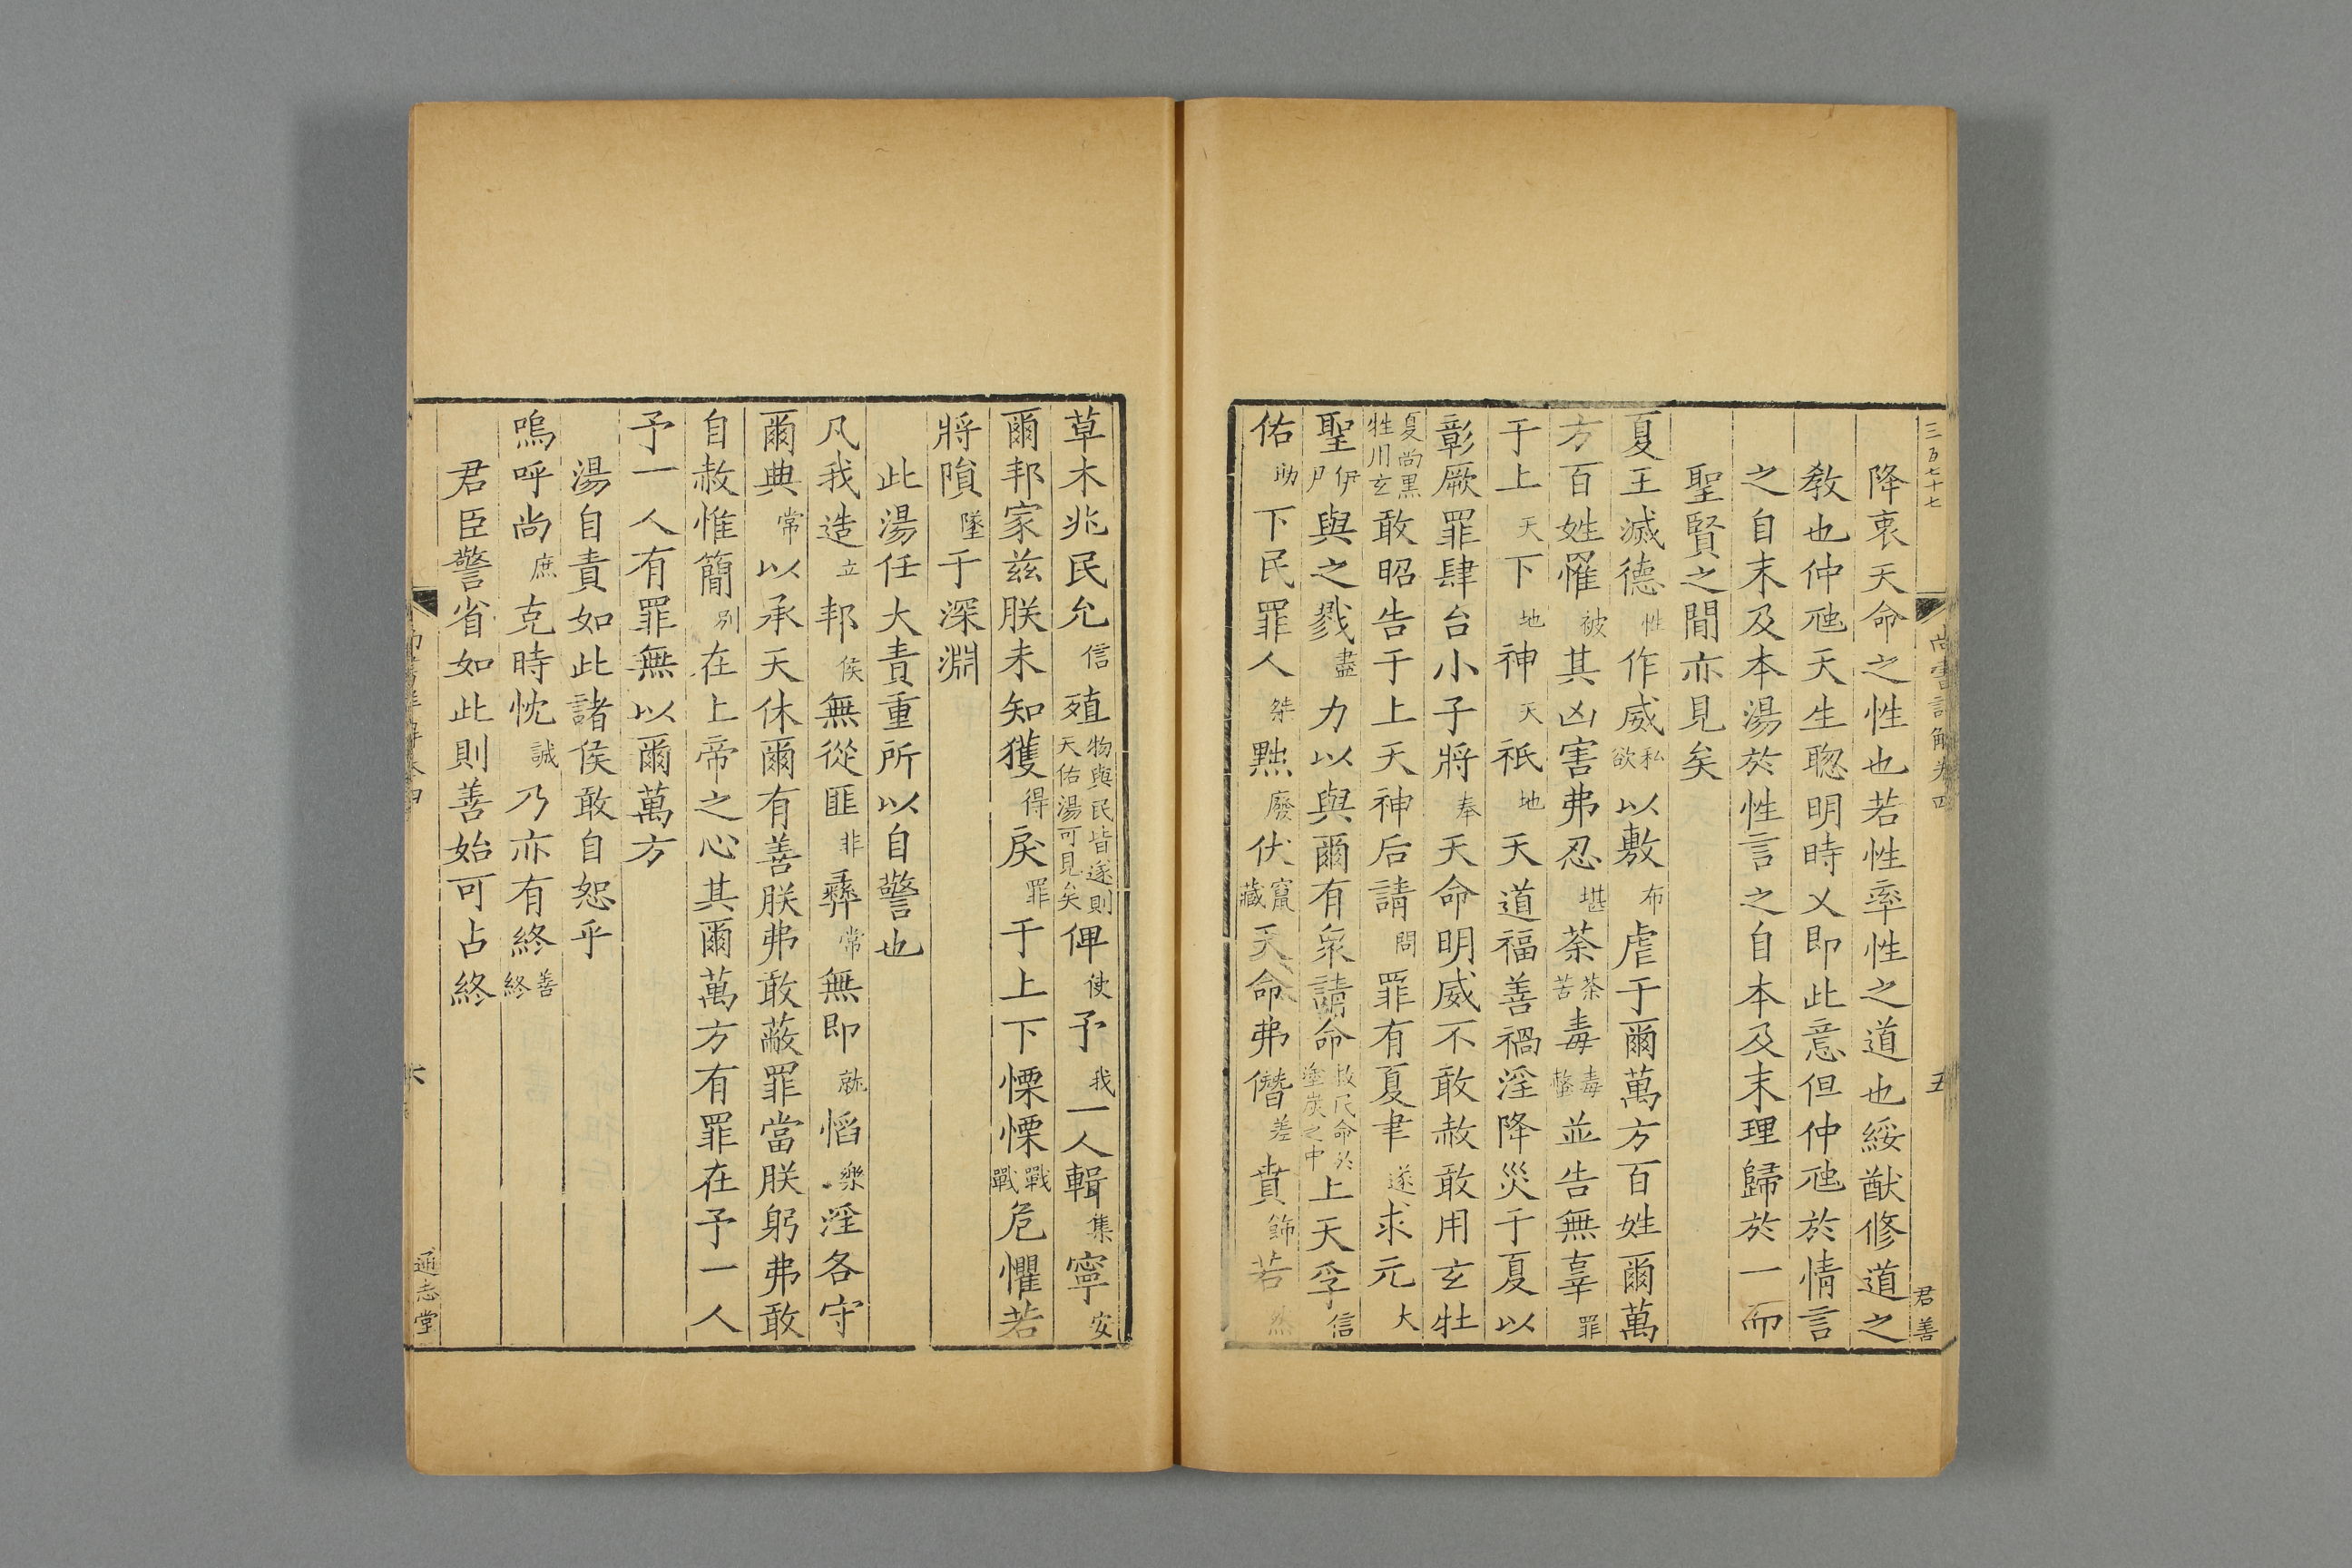 三百七十七
尚書詳解卷四 五 君善
降衷天命之性也若性率性之道也綏猷修道之
教也仲虺天生聰明時乂即此意但仲虺於情言
之自末及本湯於性言之自本及末理歸於一而
聖賢之間亦見矣
夏王滅德性作威私欲以敷布虐于爾萬方百姓爾萬
方百姓罹被其凶害弗忍堪荼荼苦毒毒螫並告無辜罪
于上天下地神天祇地天道福善禍淫降災于夏以
彰厥罪肆台小子將奉天命明威不敢赦敢用玄牡
夏尚黑牲用玄敢昭告于上天神后請問罪有夏聿遂求元大
聖伊尹與之戮盡力以與爾有衆請命救民命於塗炭之中上天孚信
佑助下民罪人桀黜廢伏竄藏天命弗僭差賁飾若然
草木兆民允信殖物與民皆遂則天佑湯可見矣俾使予我一人輯集寧安
爾邦家茲朕未知獲得戾罪于上下慄慄戰戰危懼若
將隕墜于深淵
此湯任大責重所以自警也
凡我造立邦侯無從匪非彞常無即就慆樂淫各守
爾典常以承天休爾有善朕弗敢蔽罪當朕躬弗敢
自赦惟簡別在上帝之心其爾萬方有罪在予一人
予一人有罪無以爾萬方
湯自責如此諸侯敢自恕乎
嗚呼尚庶克時忱誠乃亦有終善終
君臣警省如此則善始可占終
六 通志堂